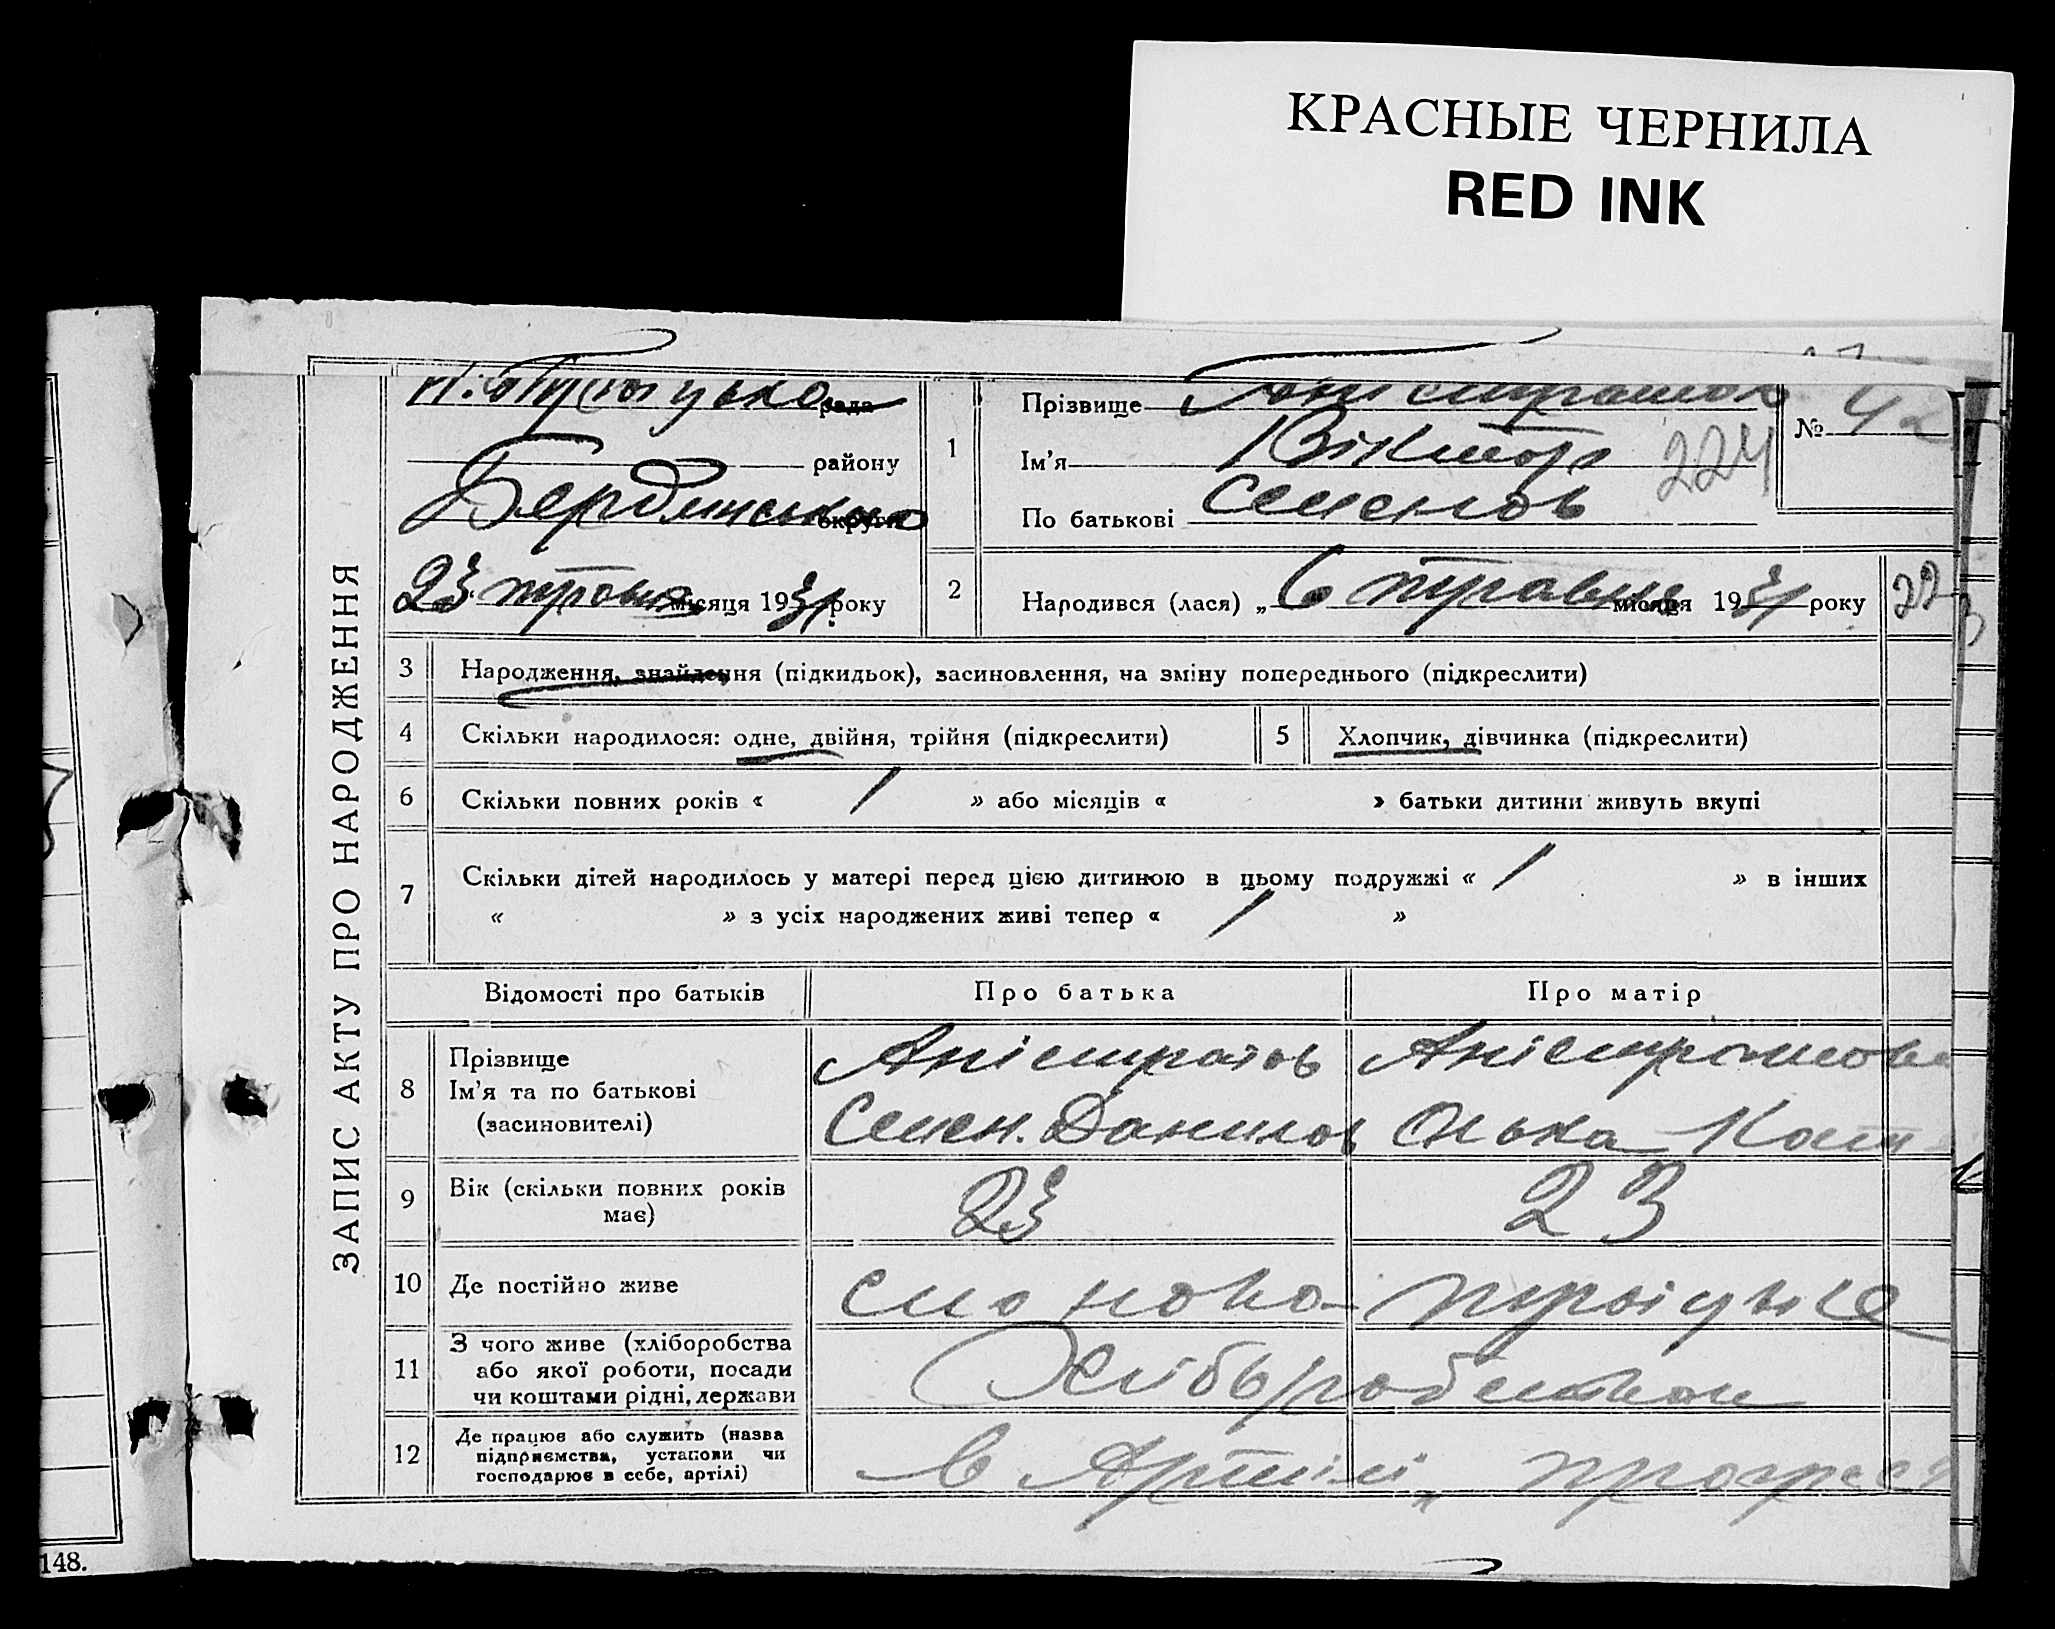 КРАСНЫЕ ЧЕРНИЛА
RED INK
ЗАПИС АКТУ ПРО НАРОДЖЕННЯ
рада
району
Бердянсько округи
23 травня місяця 1931 року
1
Прізвище
Ім'я Віктор
По батькові Семенов
224
№ 42
2
Народився (лася) „ 6 травня місяця 1931 року
22
3
Народження, знайдення (підкидьок), засиновлення, на зміну попереднього (підкреслити)
4
Скільки народилося: одне, двійня, трійня (підкреслити)
5
Хлопчик, дівчинка (підкреслити)
6
Скільки повних років « / » або місяців « » батьки дитини живуть вкупі
7
Скільки дітей народилось у матері перед цією дитиною в цьому подружжі « / » в інших
« » з усіх народжених живі тепер « / »
Відомості про батьків
Про батька
Про матір
8
Прізвище
Ім'я та по батькові
(засиновителі)
Аністратов
Семен. Данилов
Кост
9
Вік (скільки повних років
має)
23
23
10
Де постійно живе
ново-троіцьке
11
З чого живе (хліборобства
або якої роботи, посади
чи коштами рідні, держави
Хліборобством
12
Де працює або служить (назва
підприємства, установи чи
господарює в себе, артілі)
в Артілі „ прогрес
148.